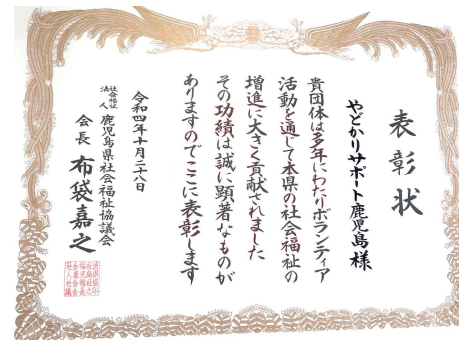 表彰状
やどかりサポート鹿児島様
貴団体は多年にわたりボランティア
活動を通して本県の社会福祉の
増進に大きく貢献されました
その功績は誠に顕著なものが
ありますのでここに表彰します
令和四年十月二十八日
社会福祉法人 鹿児島県社会福祉協議会
会長 布袋嘉之